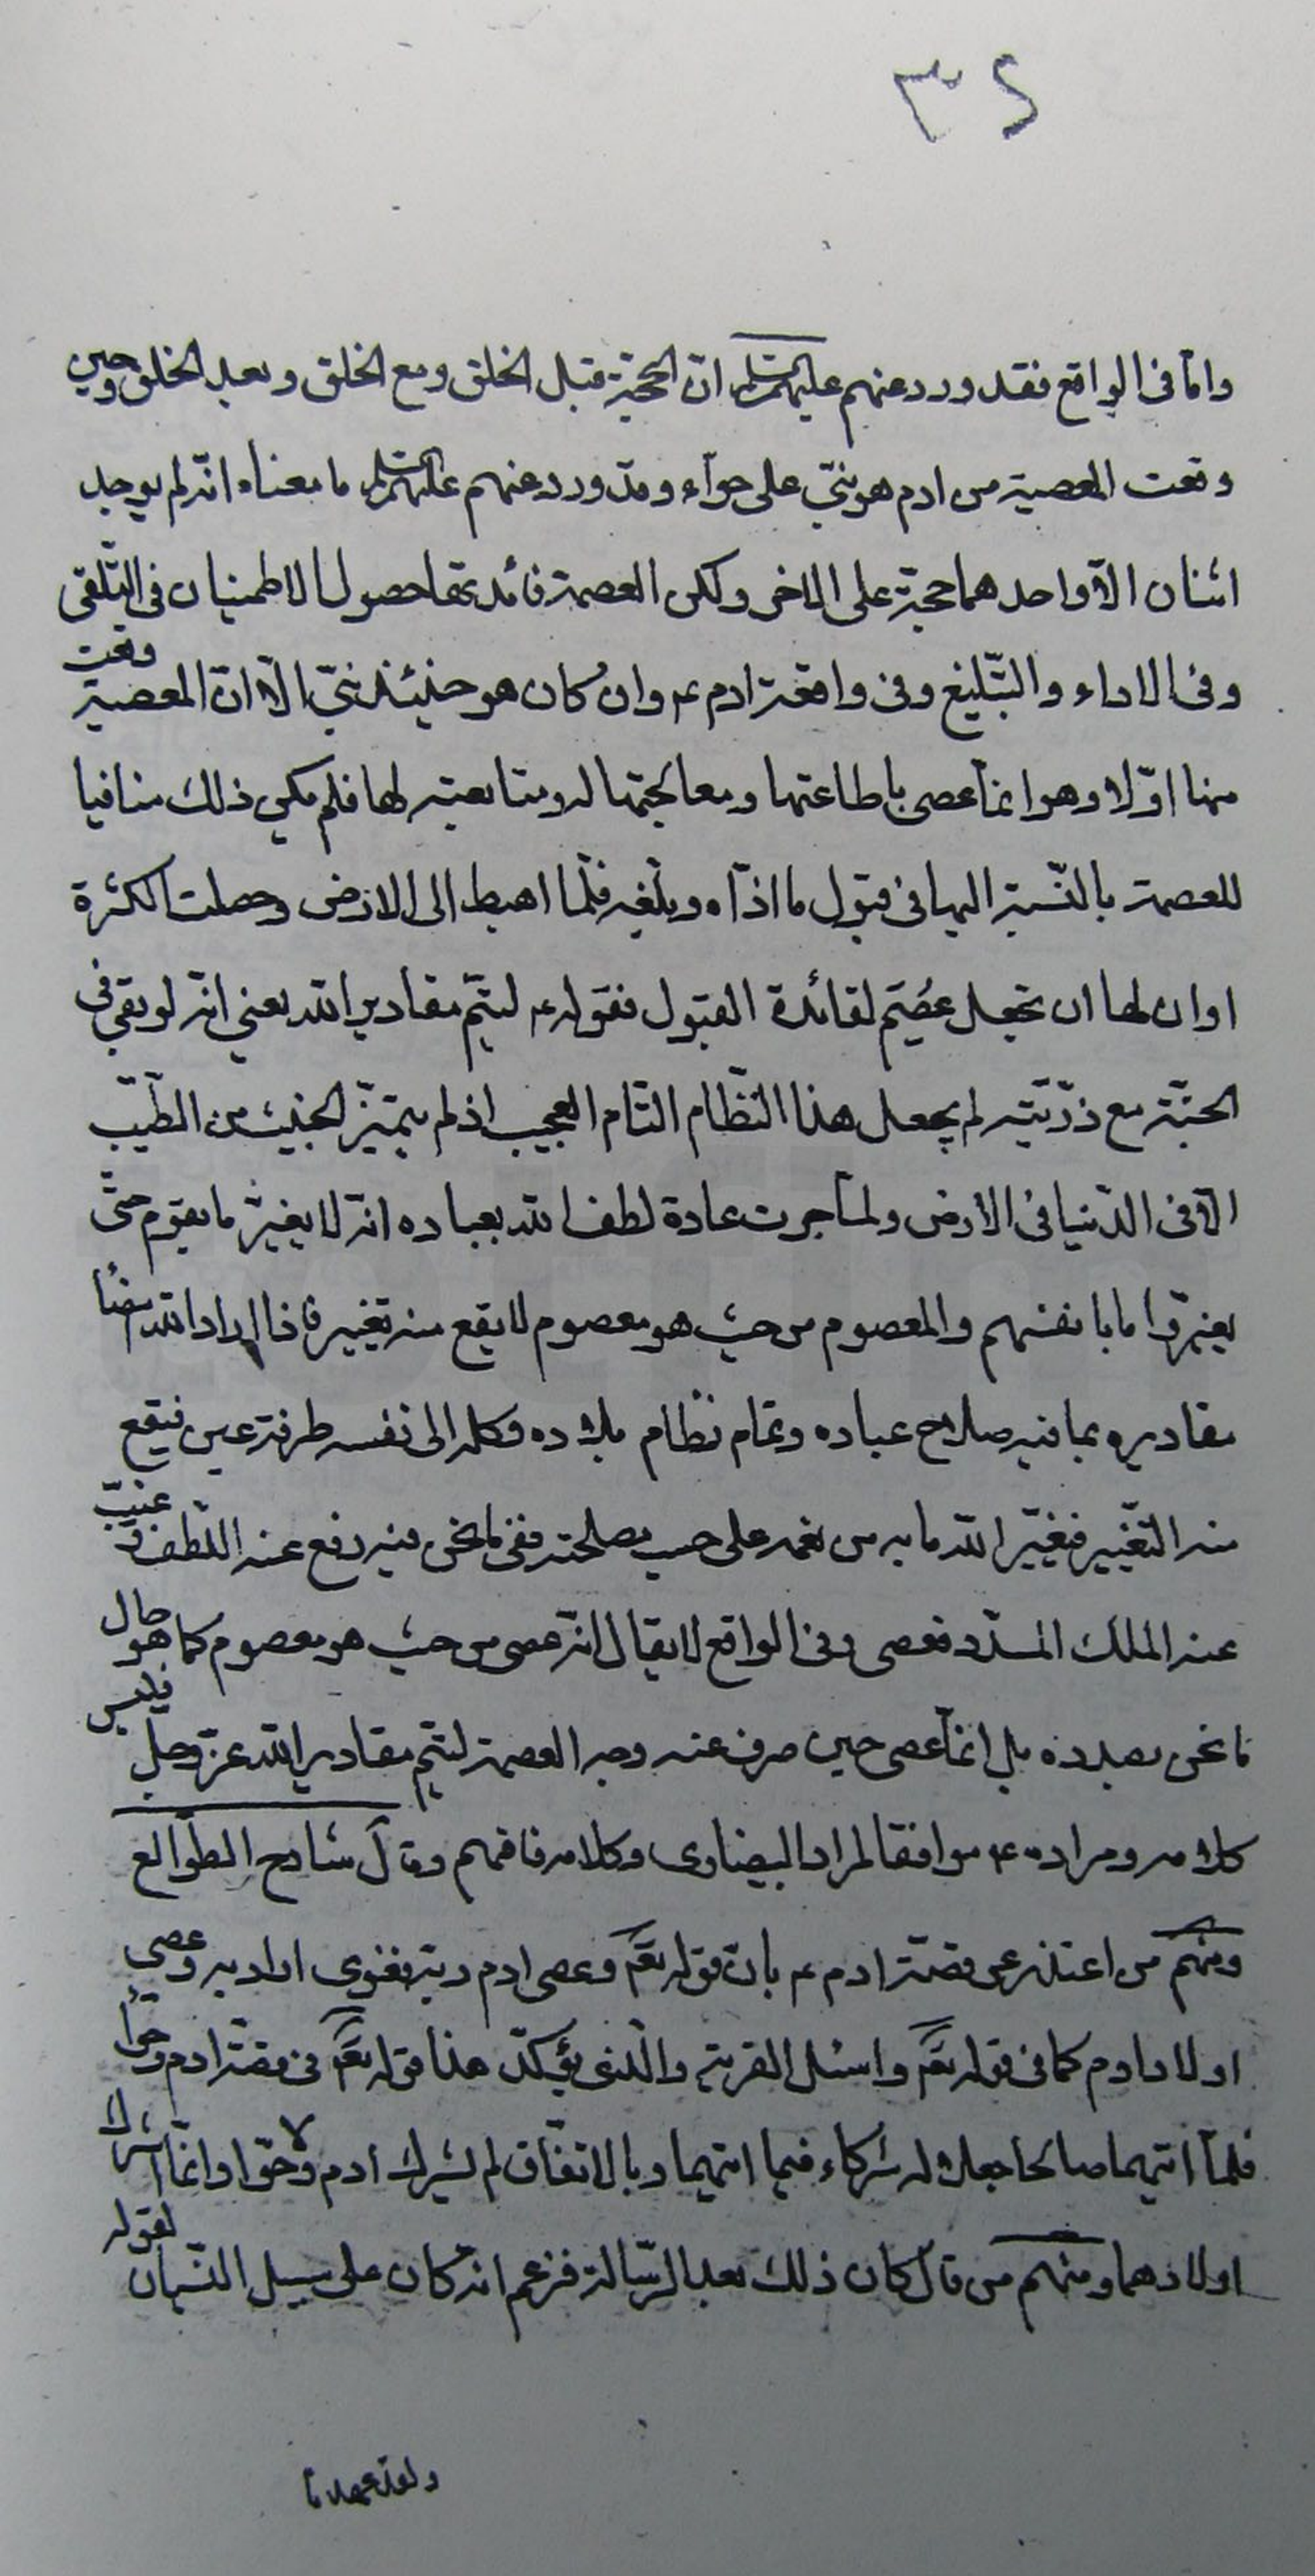 ٣٤
وامّا فى الواقع فقد ورد عنهم عليهم السلام ان الحجّة قبل الخلق ومع الخلق وبعد الخلق وحين
وقعت المعصية من ادم هو نبىّ على حوّاء وقد ورد عنهم عليهم السلام ما معناه انّه لم يوجد
اثنان الّا واحدهما حجّة على الاخر ولكن العصمة فائدتها حصول الاطمينان فى التّلقى
وفى الاداء والتّبليغ وفى واقعة ادم ع وان كان هو حينئذ نبىّ الّا انّ المعصية وقعت
منها اوّلا وهو انمّا عصى باطاعتها ومعالجتها له ومتابعته لها فلم يكن ذلك منافيا
للعصمة بالنّسبة اليها فى قبول ما ادّاه وبلّغه فلّما اهبط الى الارض وحصلت الكثرة
اوان لها ان تجعل عُصِمَ لفائدة القبول فقوله ع لتتمّ مقادير الله يعنى انّه لو بقى فى
الجنّة مع ذرّيّته لم يجعل هذا النّظام التّام العجيب اذ لم يتميّز الخبيث من الطّيّب
الّا فى الدّنيا فى الارض ولمّا جرت عادة لطف الله بعباده انّه لا يغيّر ما بقوم حتّى
يغيّروا ما بانفسهم والمعصوم من حيث هو معصوم لا يقع منه تغيير فاذا اراد الله امضاء
مقاديره بما فيه صلاح عباده وتمام نظام بلاده وكله الى نفسه طرفة عين فيقع
منه التّغيير فيغيّر الله ما به من نعمه على حسب مصلحته ففى ما نحن فيه رفع عنه اللّطف وغيّب
عنه الملك المسدّد فعصى وفى الواقع لا يقال انّه عصى من حيث هو معصوم كما هو حال
ما نحن بصدده بل انمّا عصى حين صرف عنه وجه العصمة لتتمّ مقادير الله عزّ وجلّ فليس
كلامه ومراده ع موافقا لمراد البيضاوى وكلامه فافهم وقال شارح الطّوالع
ومنهم من اعتذر عن قصّة ادم ع بانّ قوله تعم وعصى ادم ربّه فغوى اراد به وعصى
اولاد ادم كما فى قوله تعم واسئل القرية والّذى يؤكّد هذا قوله تعم فى قصّة ادم وحوّا
فلمّا اتيهما صالحا جعلا له شركاء فيما اتيهما وبالاتفّاق لم يشرك ادم ولا حوّا وانمّا اشرك
اولادهما ومنهم من قال كان ذلك بعد الرّسالة فزعم انّه كان على سبيل النّسيان لقوله
ولقد عهدنا